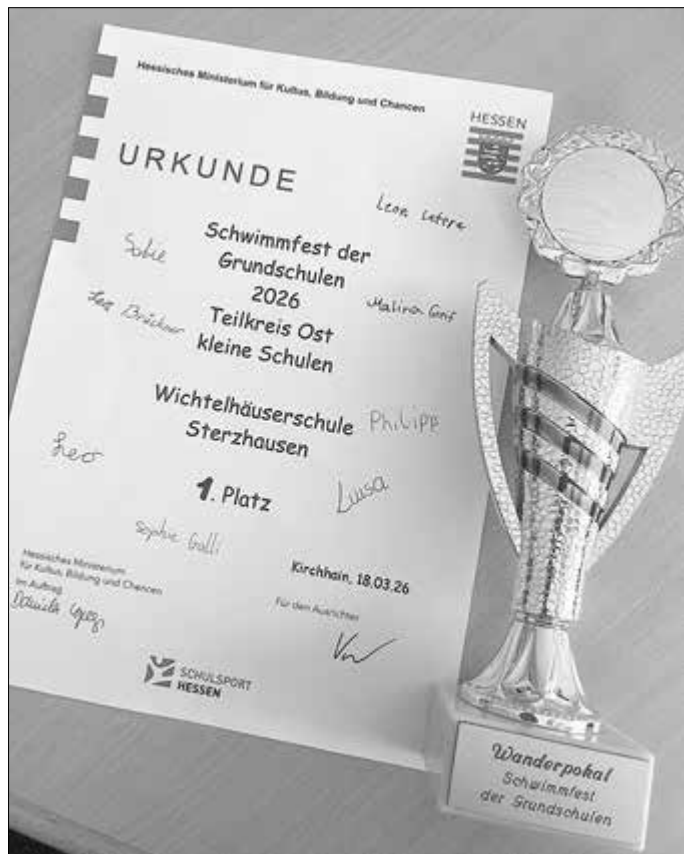 Hessisches Ministerium für Kultus, Bildung und Chancen
HESSEN
URKUNDE
Leon
Schwimmfest der
Grundschulen
2026
Teilkreis Ost
kleine Schulen
Malina Graf
Lea Brückner
Wichtelhäuserschule
Sterzhausen
Philipp
Leo
1. Platz
Luisa
Sophie Galli
Kirchhain, 18.03.26
Hessisches Ministerium
für Kultus, Bildung und Chancen
Im Auftrag
Daniela
Für den Ausrichter
SCHULSPORT
HESSEN
Wanderpokal
Schwimmfest
der Grundschulen